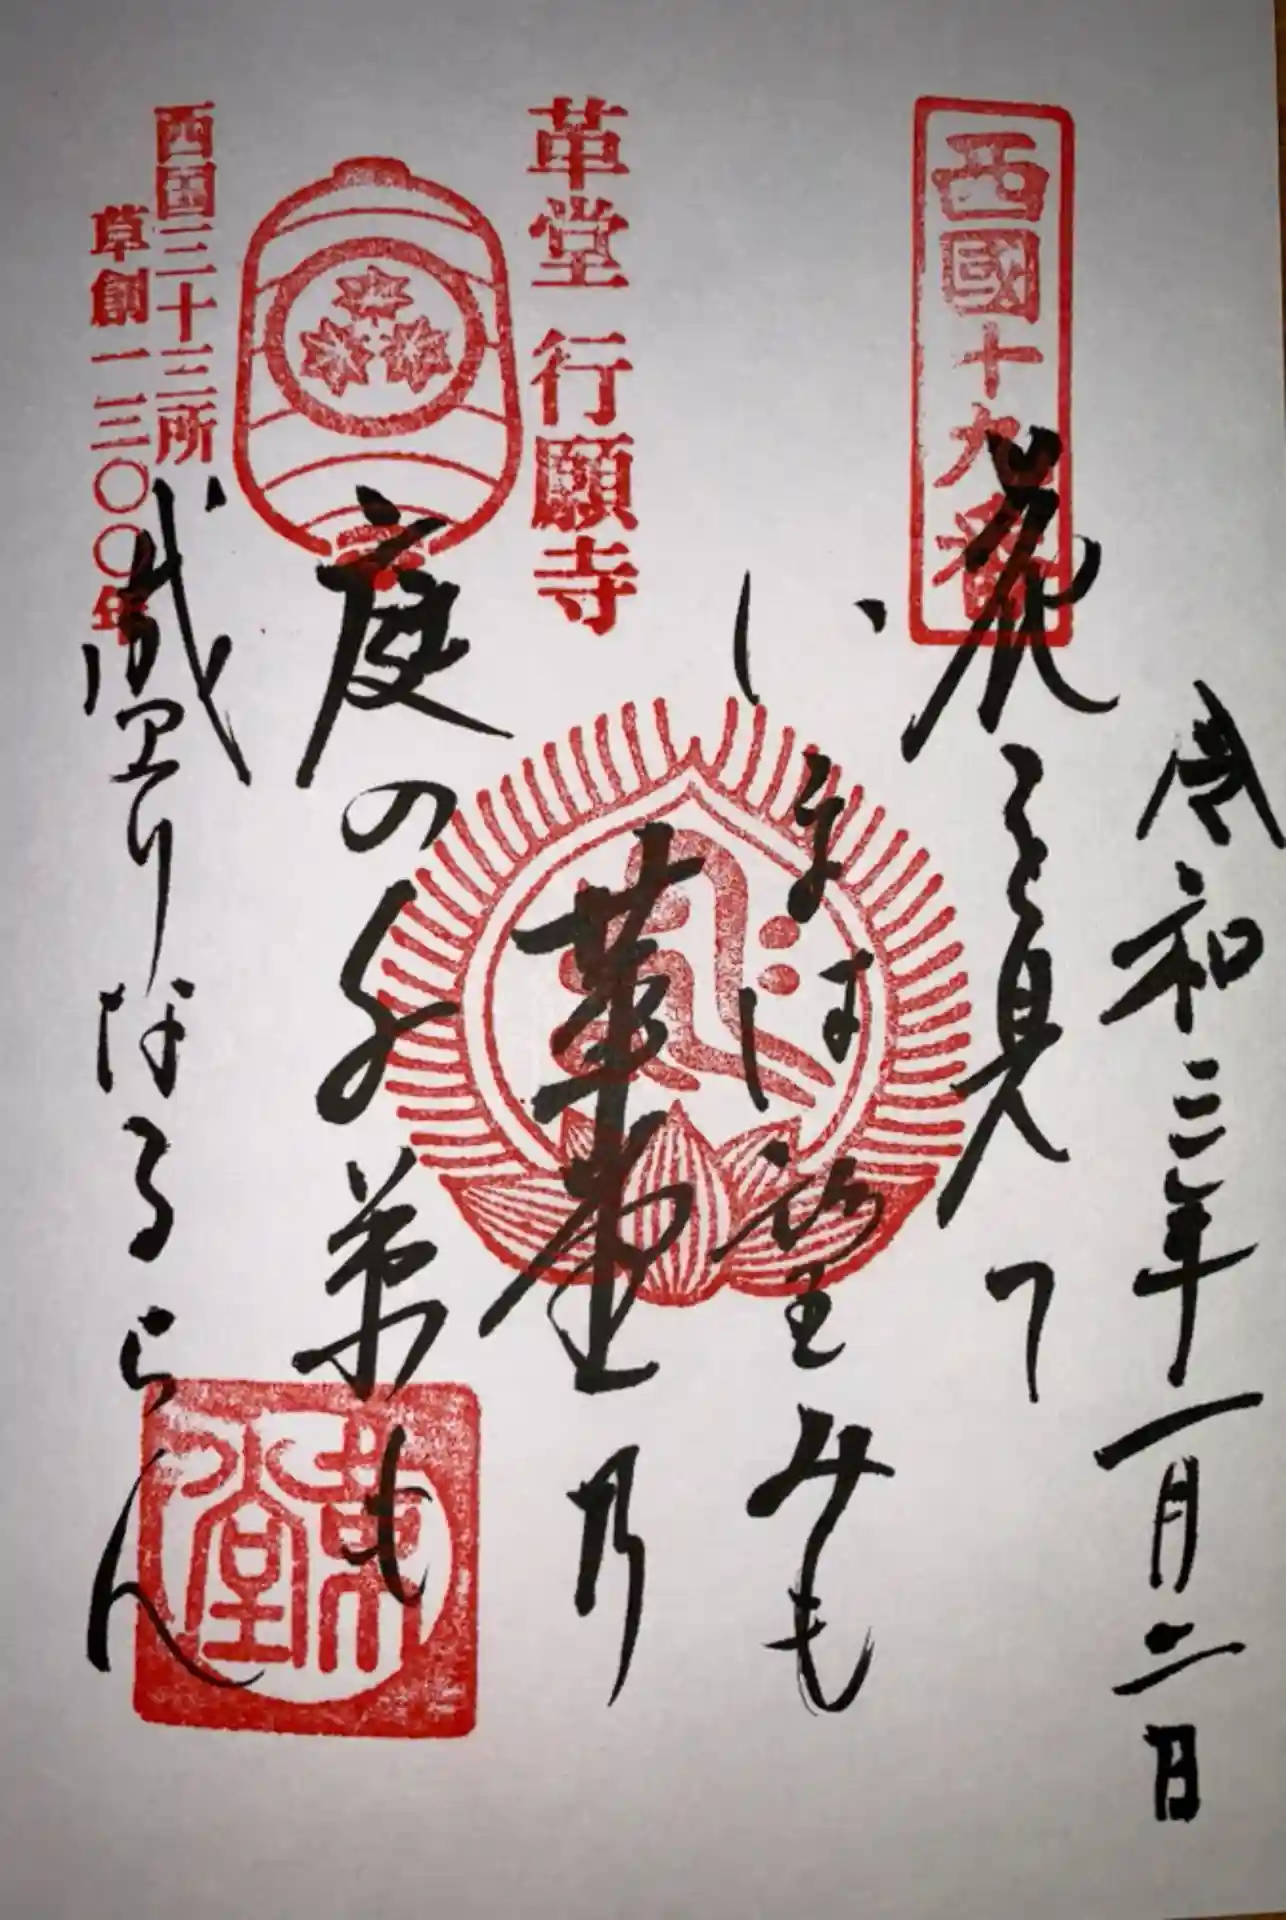 西國十九番
令和三年一月二日
花を見て
いまは望みも
革堂乃
庭の千草も
盛りなるらん
革堂 行願寺
西国三十三所
草創一三〇〇年
革堂